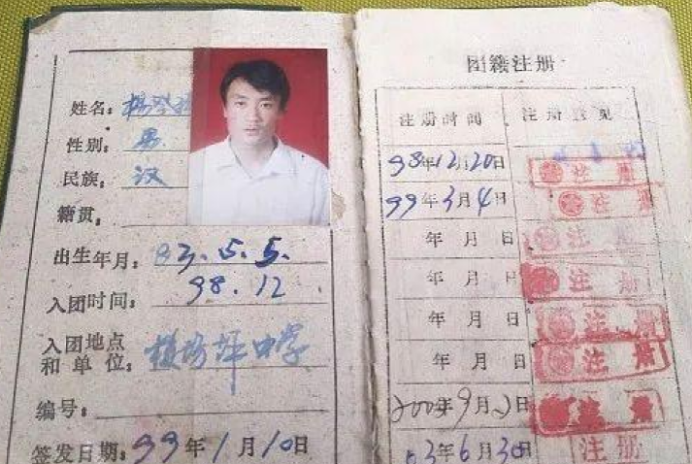 姓名：杨
性别：男
民族：汉
籍贯：
出生年月：83.5.5.
入团时间：98.12
入团地点
和单位：坪中学
编号：
签发日期：99年1月10日
团籍注册
注册时间 注册
98年12月20日 注册
99年3月4日 注册
年 月 日 注册
年 月 日 注册
年 月 日 注册
年 月 日 注册
9月2日 注册
03年6月30日 注册